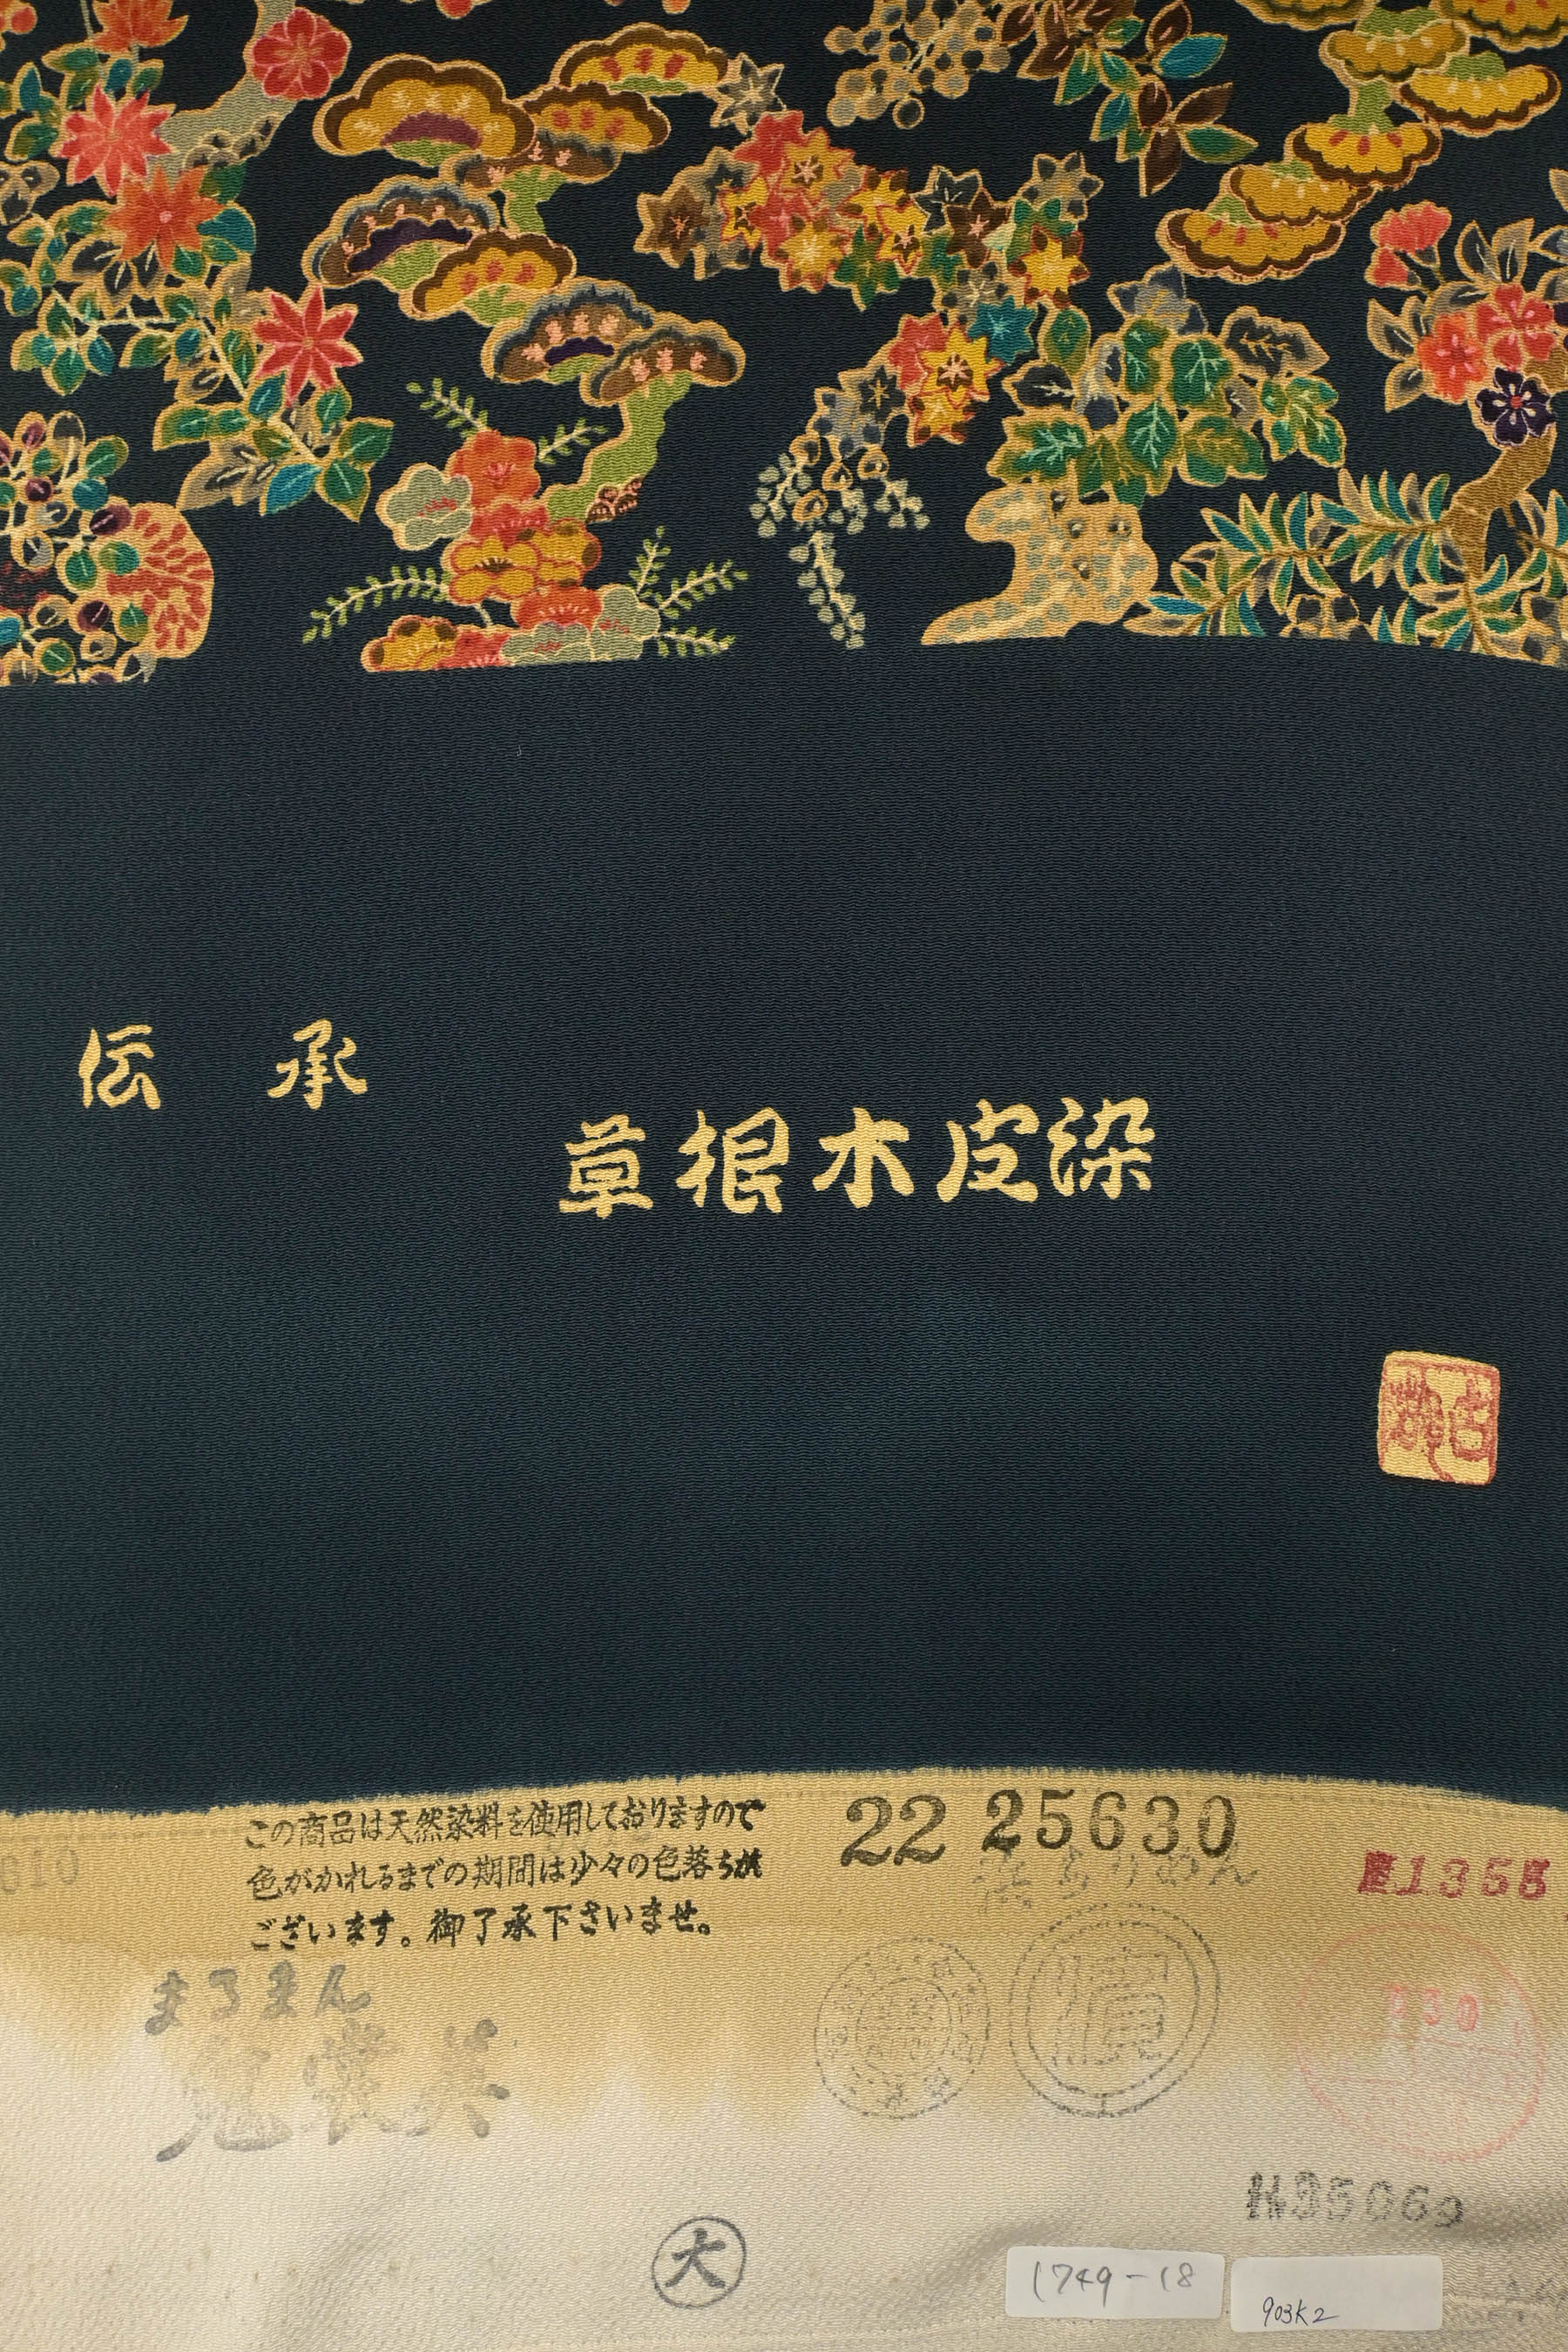 伝承
草根木皮染
この商品は天然染料を使用しておりますので
色がかれるまでの期間は少々の色落ちが
ございます。御了承下さいませ。
22 25630
浜ちりめん
810
1355
まるまん
830
大
1749-18
903K2